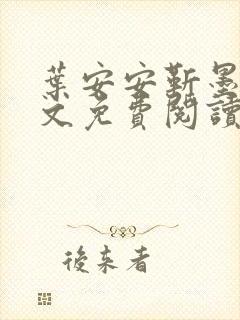 葉安安靳墨
文免費閱讀
後來者